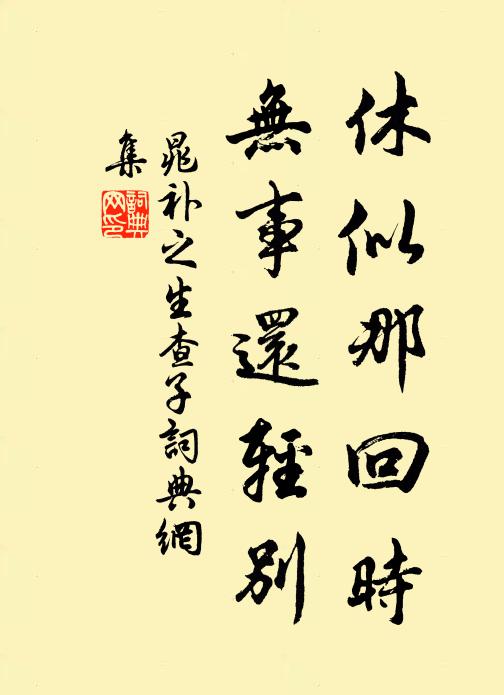 休似那回時
無事還輕別
晁补之生查子詞典網
集
詞典
网印